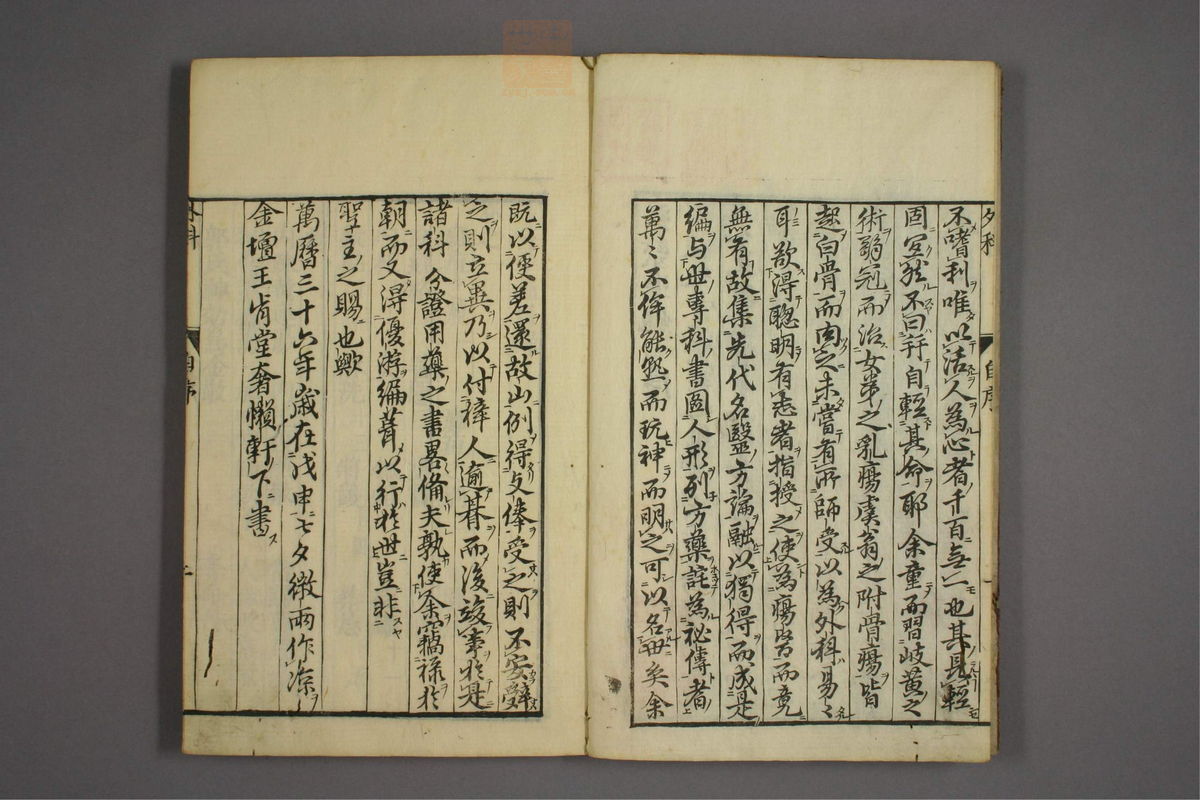 不嗜利唯以活人為心者千百無一也其見輕
固宜然不曰并自輕其命耶余童而習岐黃之
術弱冠而治女弟之乳瘍虞翁之附骨瘍皆
起白骨而肉之未嘗有所師受以為外科易々
耳欲得聰明有志者指授之使為瘍醫而竟
無有故集先代名醫方論融以獨得而成是
編与世專科書圖人形列方藥詫為祕傳者
萬々不侔能熟而玩神而明之可以名世矣余
外科
自序
既以便差還故山例得支俸受之則不安辭
之則立異乃以付梓人逾朞而後竣事於是
諸科分證用藥之書畧備夫孰使余竊祿於
朝而又得優游編葺以行於世豈非
聖主之賜也歟
萬曆三十六年歲在戊申七夕微雨作涼
金壇王肯堂奢懶軒下書
外科
自序